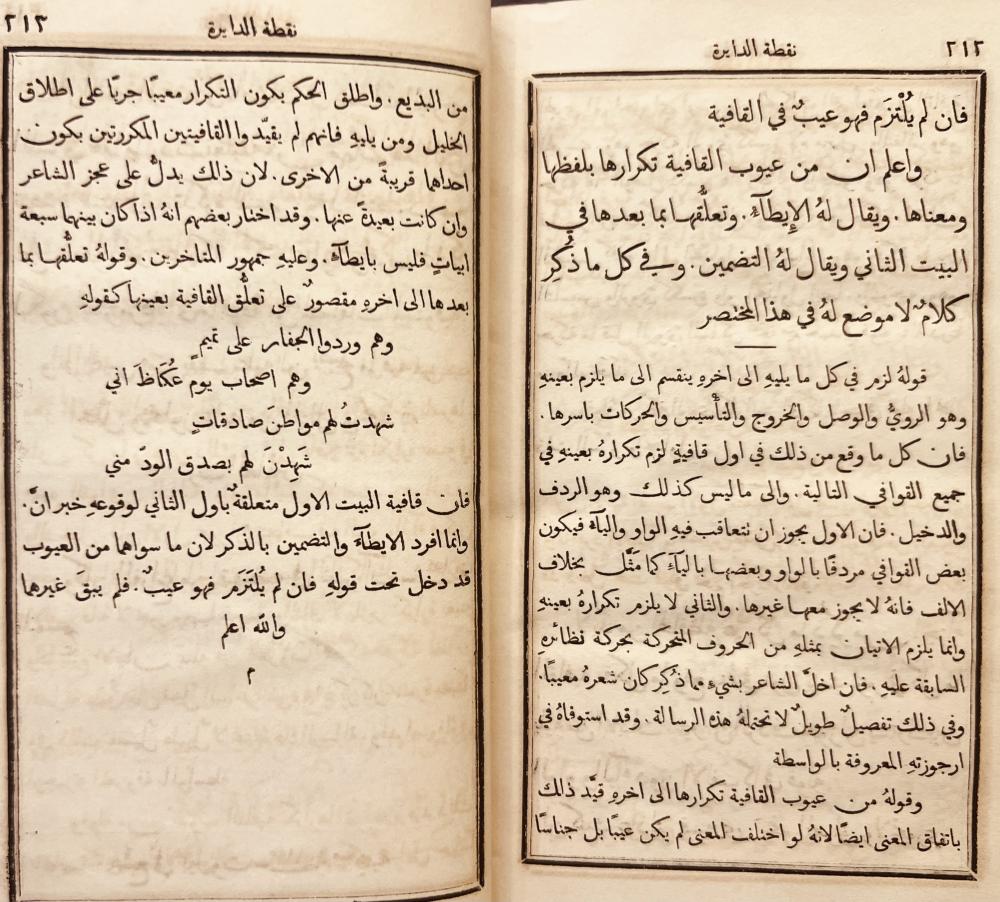 ٢١٢
نقطة الدايرة
فان لم يُلْتزَم فهو عيبٌ في القافية
واعلم ان من عيوب القافية تكرارها بلفظها
ومعناها. ويقال لهُ الإِيطآءَ. وتعلُّقها بما بعدها في
البيت الثاني ويقال لهُ التضمين. وفي كل ما ذُكِر
كلامٌ لا موضع لهُ في هذا المختصر
قولهُ لزم في كل ما يليهِ الى اخرهِ ينقسم الى ما يلزم بعينهِ
وهو الرويُّ والوصل والخروج والتأسيس والحركات باسرها.
فان كل ما وقع من ذلك في اول قافيةٍ لزم تكرارهُ بعينهِ في
جميع القوافي التالية. والى ما ليس كذلك وهو الردف
والدخيل. فان الاول يجوز ان تتعاقب فيهِ الواو واليآء فيكون
بعض القوافي مردفًا بالواو وبعضها باليآءِ كما مَثَّل بخلاف
الالف فانهُ لا يجوز معها غيرها. والثاني لا يلزم تكرارهُ بعينهِ
وانما يلزم الاتيان بمثلهِ من الحروف المتحركة بحركة نظائرهِ
السابقة عليهِ. فان اخلَّ الشاعر بشيءٍ مما ذُكِر كان شعرهُ معيبًا.
وفي ذلك تفصيلٌ طويلٌ لا تحتملهُ هذه الرسالة. وقد استوفاهُ في
ارجوزتهِ المعروفة بالواسطة
وقولهُ من عيوب القافية تكرارها الى اخرهِ قيَّد ذلك
باتفاق المعنى ايضًا لانهُ لو اختلف المعنى لم يكن عيبًا بل جناسًا
٢١٣
نقطة الدايرة
من البديع. واطلق الحكم بكون التكرار معيبًا جريًا على اطلاق
الخليل ومن يليهِ فانهم لم يقيّدوا القافيتين المكررتين بكون
احداها قريبةً من الاخرى. لان ذلك يدلُّ على عجز الشاعر
وان كانت بعيدةً عنها. وقد اختار بعضهم انهُ اذا كان بينهما سبعة
ابياتٍ فليس بايطآء. وعليهِ جمهور المتاخرين. وقولهُ تعلُّقها بما
بعدها الى اخرهِ مقصورٌ على تعلُّق القافية بعينها كقولهِ
وهم وردوا الجفار على تميمٍ
وهم اصحاب يوم عُكَاظَ اني
شهدتُ لهم مواطنَ صادقاتٍ
شَهِدْنَ لهم بصدق الودّ مني
فان قافية البيت الاول متعلقةٌ باول الثاني لوقوعهِ خبر انَّ.
وانما افرد الايطآءَ والتضمين بالذكر لان ما سواهما من العيوب
قد دخل تحت قولهِ فان لم يُلتَزَم فهو عيبٌ. فلم يبقَ غيرهما
والله اعلم
م